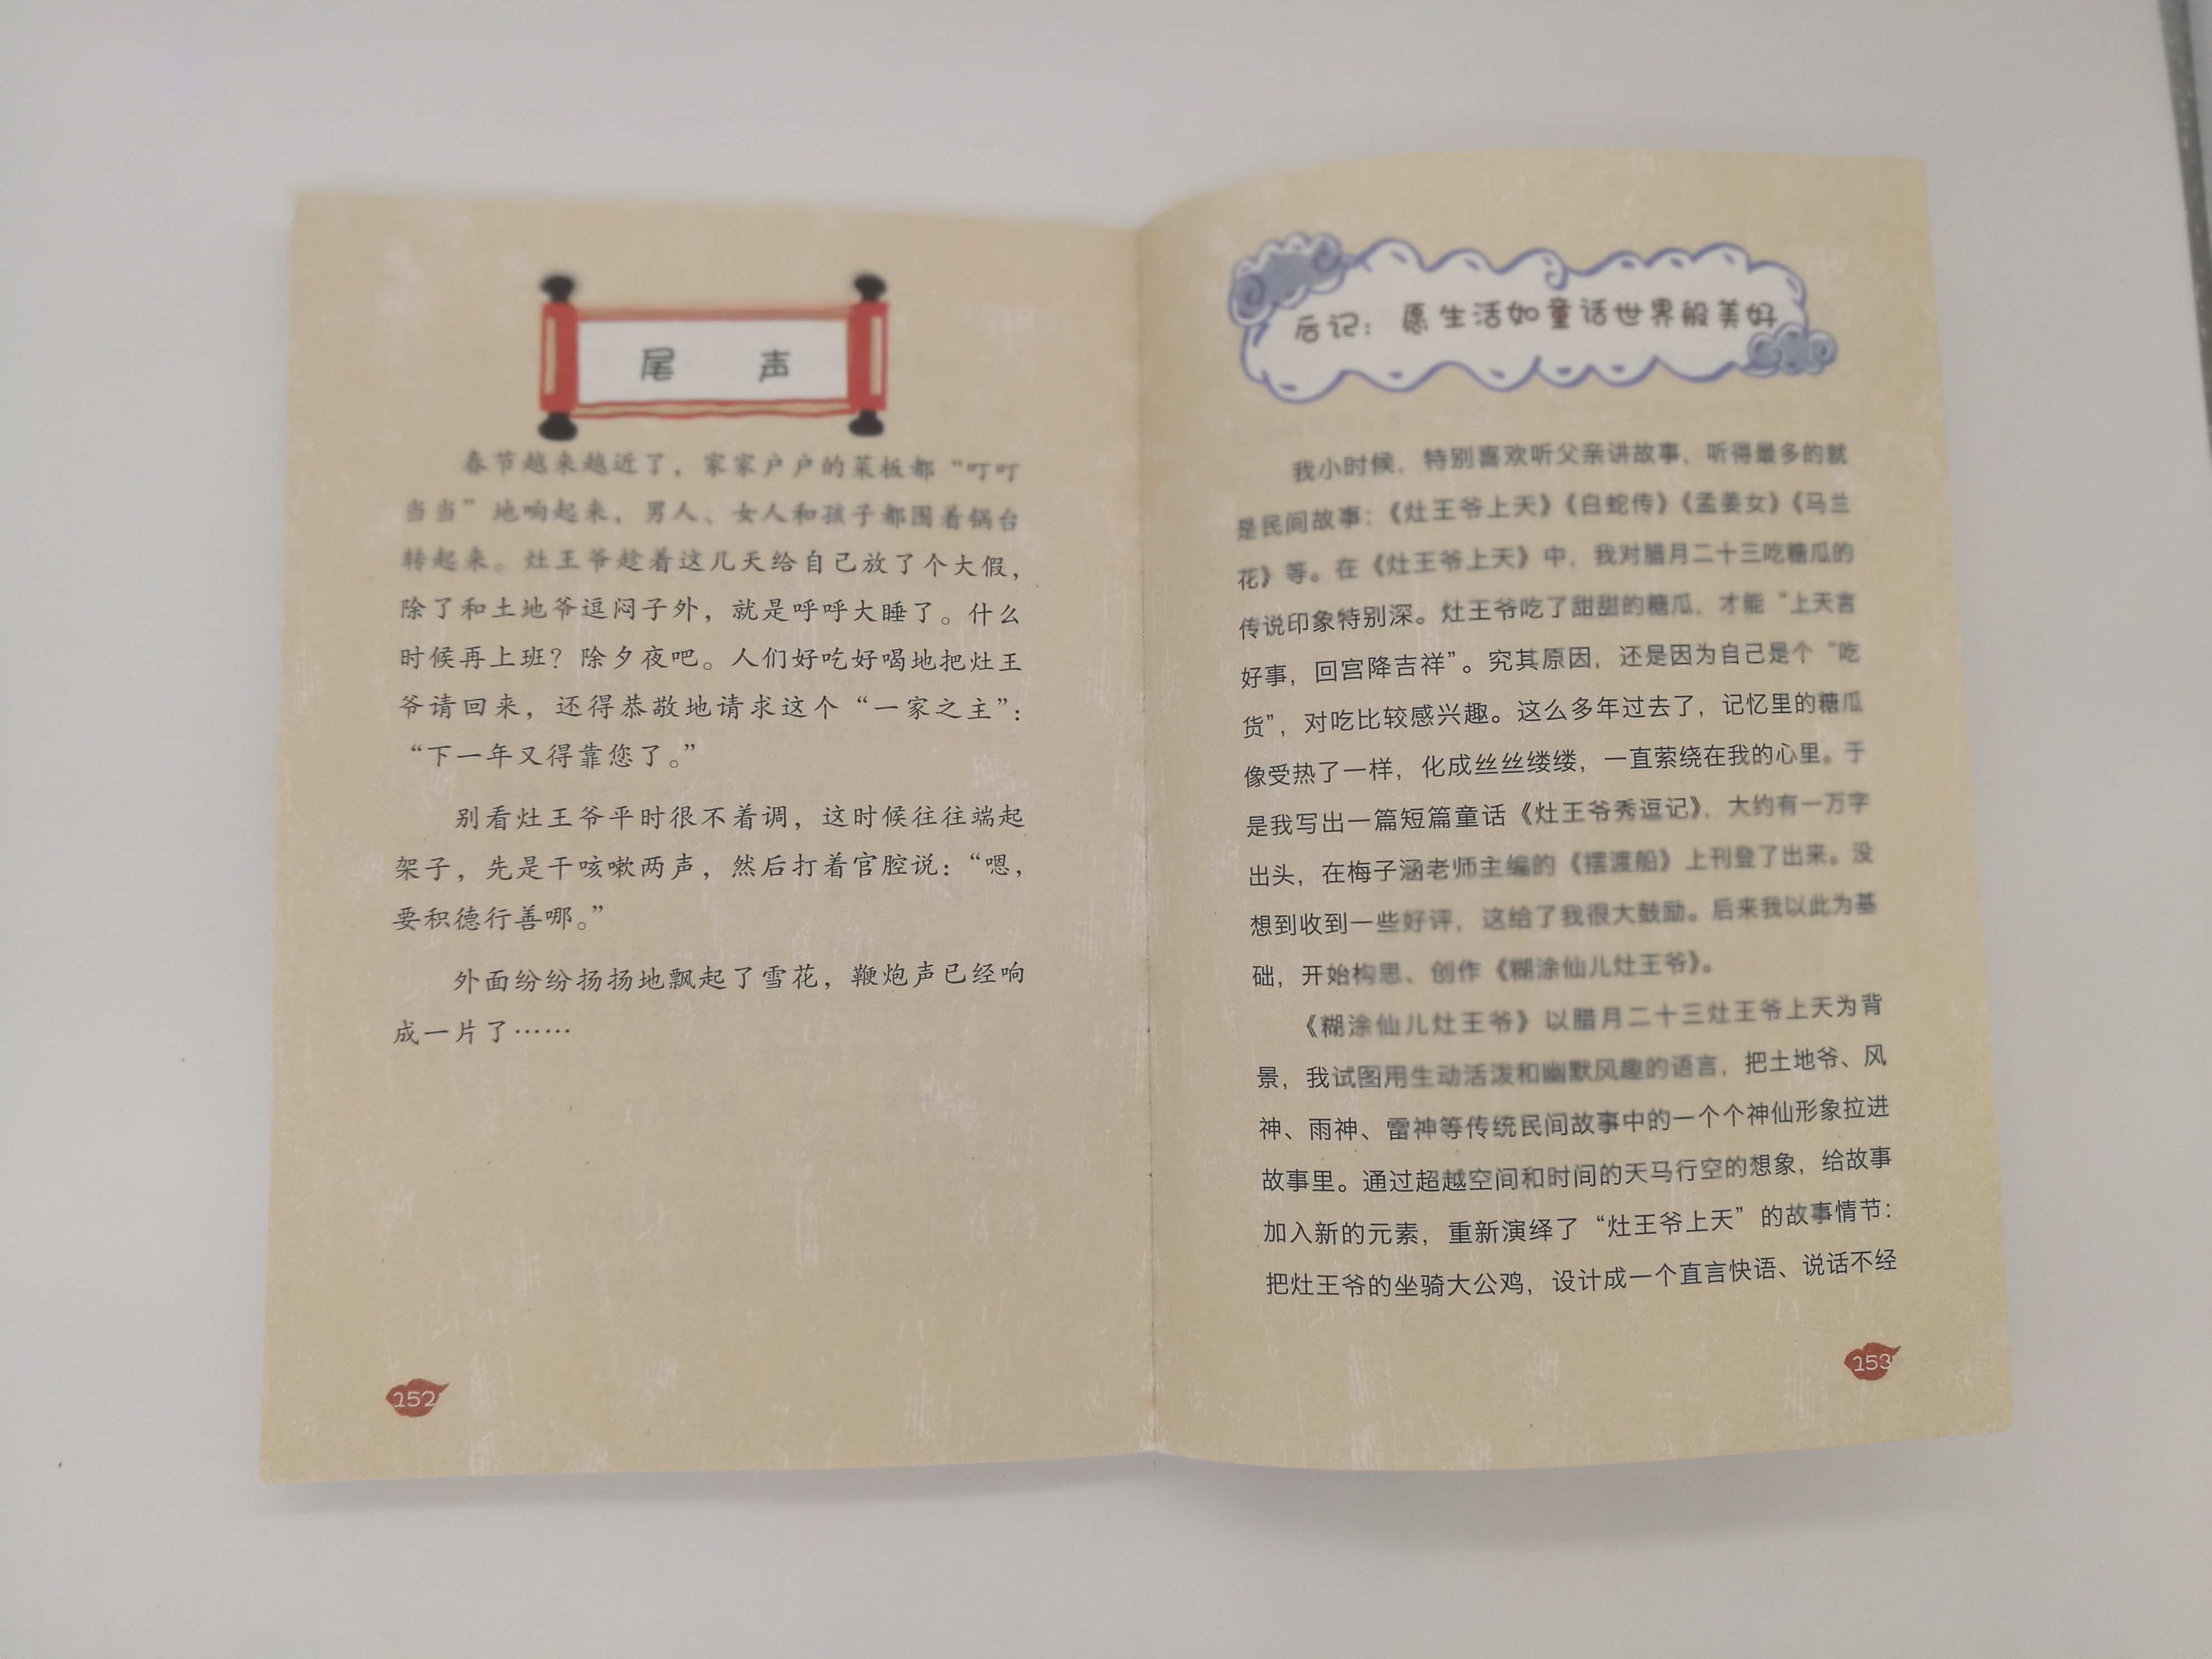 尾 声
春节越来越近了，家家户户的菜板都“叮叮
当当”地响起来，男人、女人和孩子都围着锅台
转起来。灶王爷趁着这几天给自己放了个大假，
除了和土地爷逗闷子外，就是呼呼大睡了。什么
时候再上班？除夕夜吧。人们好吃好喝地把灶王
爷请回来，还得恭敬地请求这个“一家之主”：
“下一年又得靠您了。”
别看灶王爷平时很不着调，这时候往往端起
架子，先是干咳嗽两声，然后打着官腔说：“嗯，
要积德行善哪。”
外面纷纷扬扬地飘起了雪花，鞭炮声已经响
成一片了……
152
后记：愿生活如童话世界般美好
我小时候，特别喜欢听父亲讲故事，听得最多的就
是民间故事：《灶王爷上天》《白蛇传》《孟姜女》《马兰
花》等。在《灶王爷上天》中，我对腊月二十三吃糖瓜的
传说印象特别深。灶王爷吃了甜甜的糖瓜，才能“上天言
好事，回宫降吉祥”。究其原因，还是因为自己是个“吃
货”，对吃比较感兴趣。这么多年过去了，记忆里的糖瓜
像受热了一样，化成丝丝缕缕，一直萦绕在我的心里。于
是我写出一篇短篇童话《灶王爷秀逗记》，大约有一万字
出头，在梅子涵老师主编的《摆渡船》上刊登了出来。没
想到收到一些好评，这给了我很大鼓励。后来我以此为基
础，开始构思、创作《糊涂仙儿灶王爷》。
《糊涂仙儿灶王爷》以腊月二十三灶王爷上天为背
景，我试图用生动活泼和幽默风趣的语言，把土地爷、风
神、雨神、雷神等传统民间故事中的一个个神仙形象拉进
故事里。通过超越空间和时间的天马行空的想象，给故事
加入新的元素，重新演绎了“灶王爷上天”的故事情节：
把灶王爷的坐骑大公鸡，设计成一个直言快语、说话不经
153